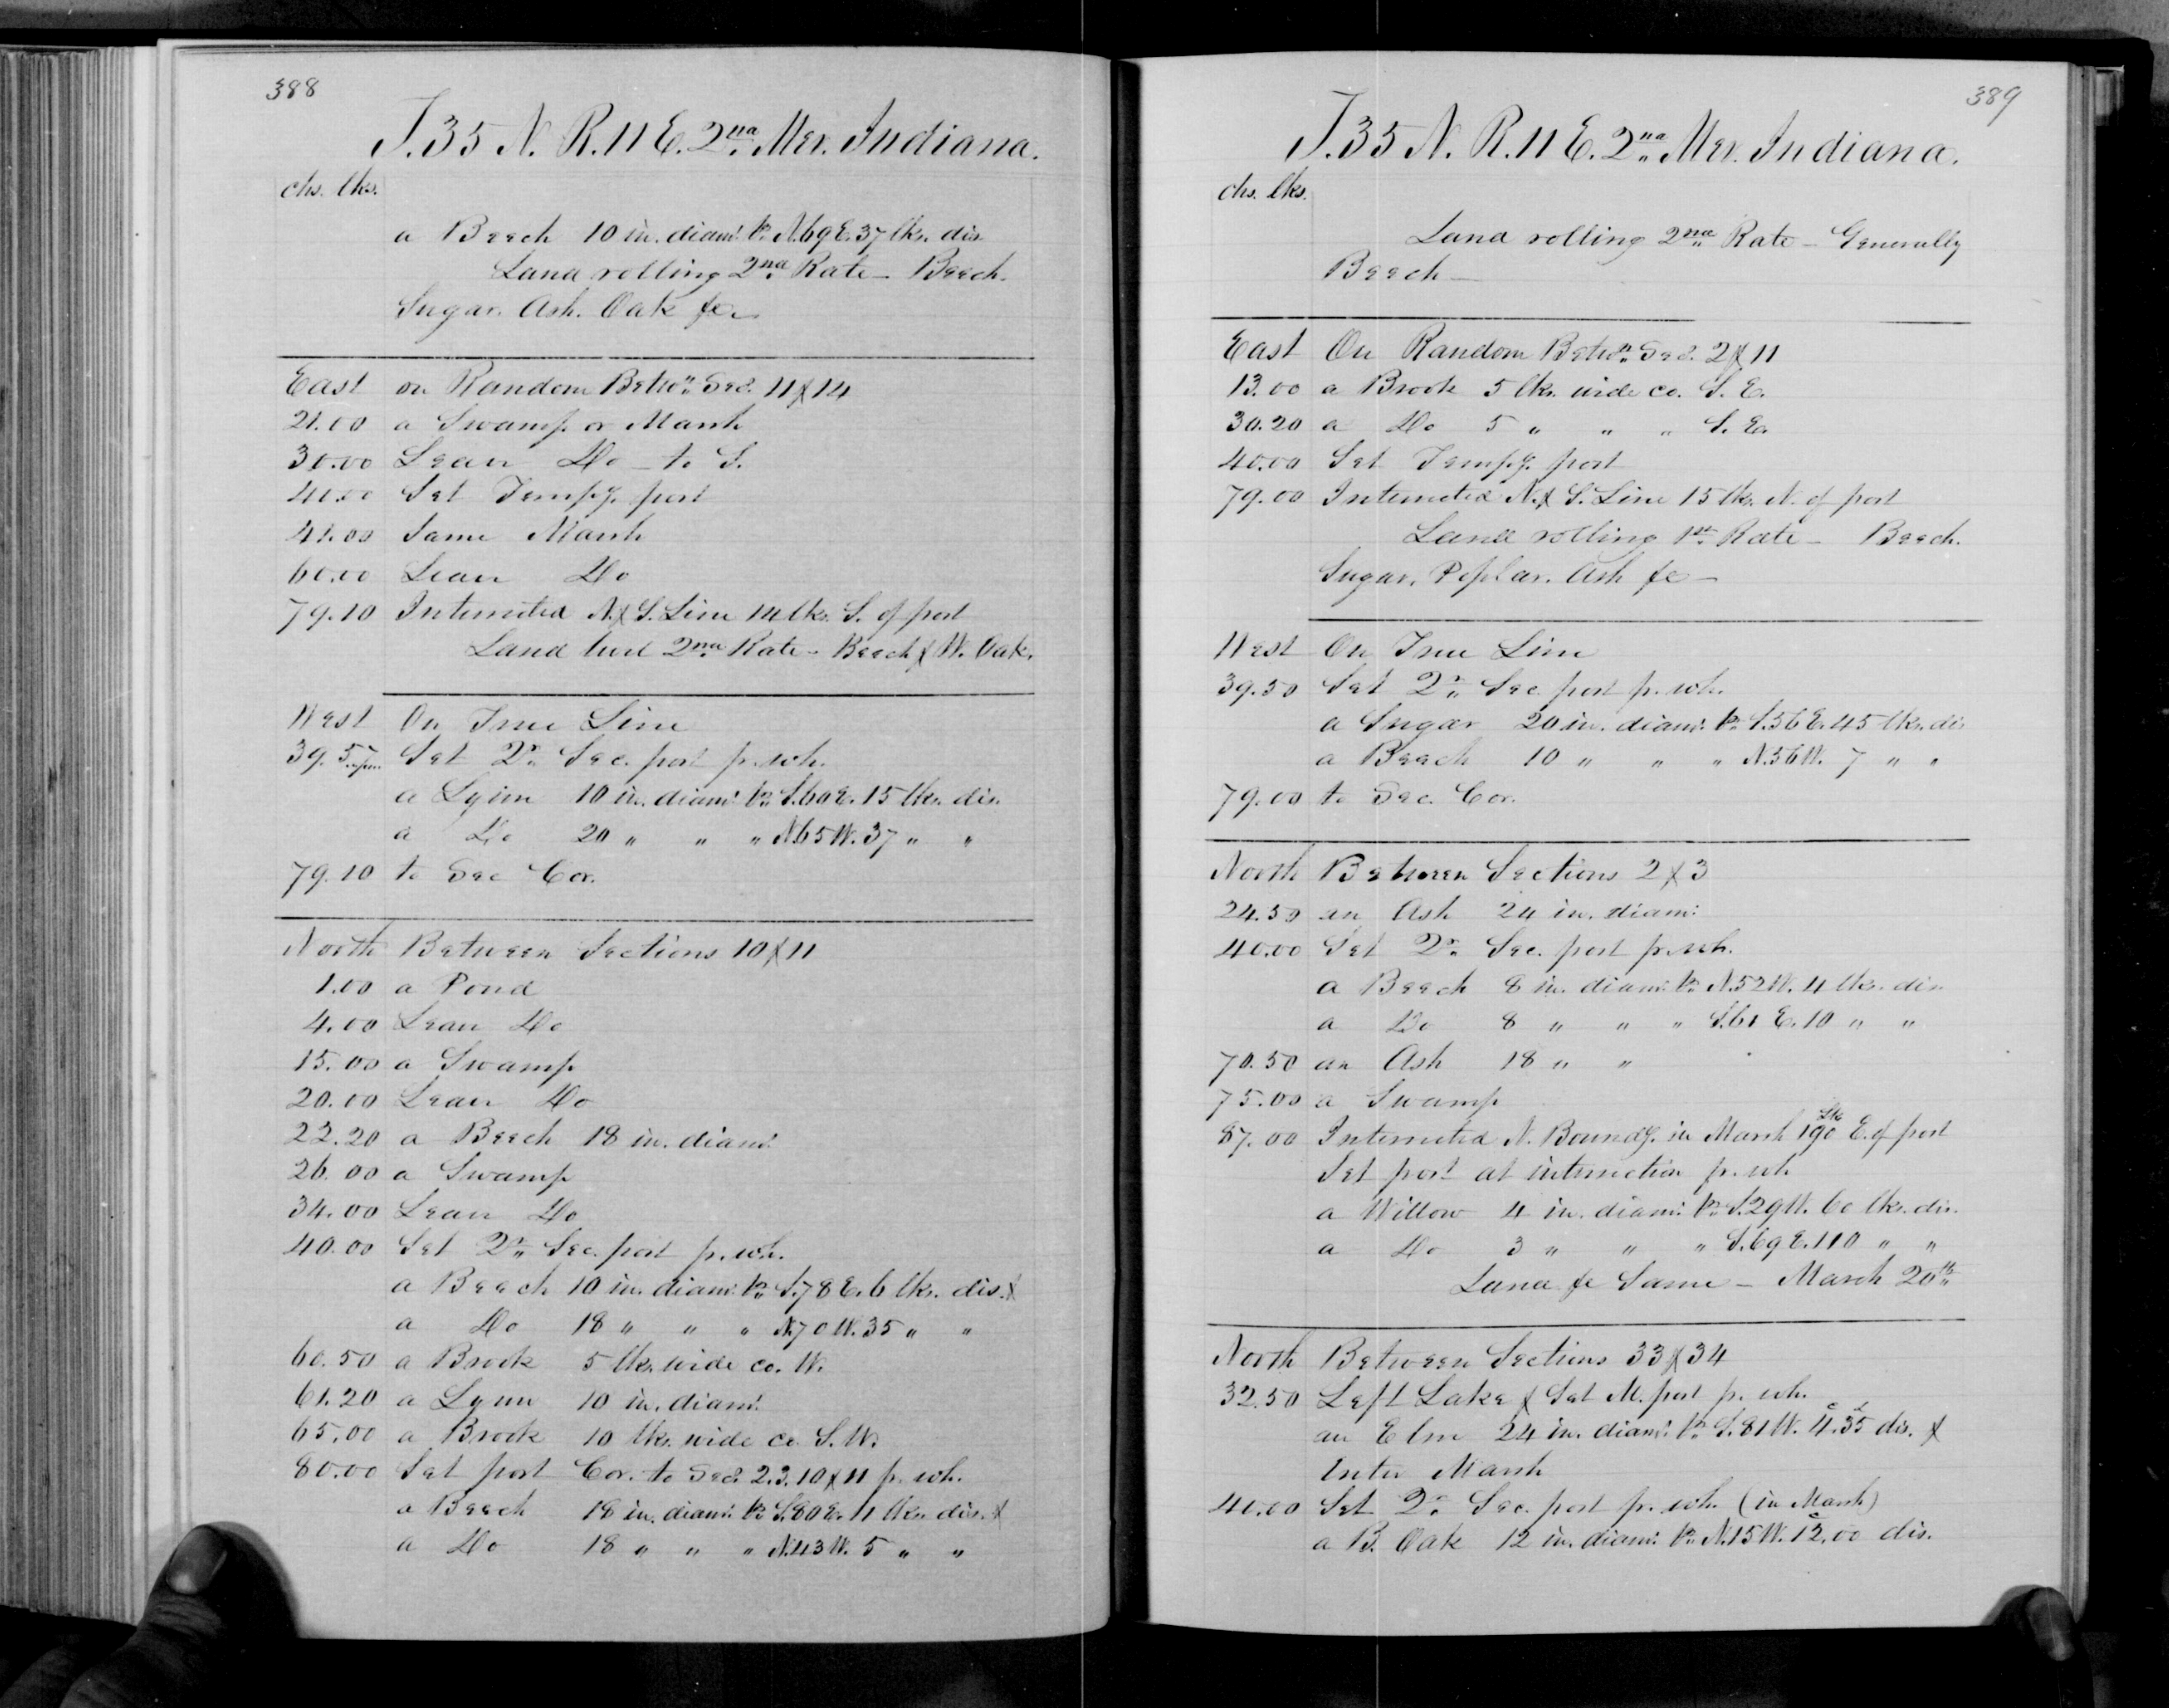 388
T. 35 N. R. 11 E. 2nd Mer. Indiana.
chs. lks.
a Beech 10 in. diam. br. N.69 E. 37 lks. dis.
Land rolling 2nd Rate – Beech.
Sugar. Ash. Oak &c
East on Random Betwn. Secs. 11 & 14
21.00 a Swamp or Marsh
30.00 Leave Do – to S.
40.00 Set Tempy. post
41.00 Same Marsh
60.00 Leave Do
79.10 Intersected N. & S. Line 14 lks. S. of post
Land level 2nd Rate – Beech & W. Oak.
West On True Line
39.5 Set Qr. Sec. post fr. wh.
a Lynn 10 in. diam. br. S.60 E. 15 lks. dis.
a Do 20 " " " N.65 W. 37 " "
79.10 to Sec Cor.
North Between Sections 10 & 11
1.00 a Pond
4.00 Leave Do
15.00 a Swamp
20.00 Leave Do
22.20 a Beech 18 in. diam.
26.00 a Swamp
34.00 Leave Do
40.00 Set Qr. Sec. post fr. wh.
a Beech 10 in. diam. br. S.78 E. 6 lks. dis. &
a Do 18 " " " N.70 W. 35 " "
60.50 a Brook 5 lks. wide co. W.
61.20 a Lynn 10 in. diam.
65.00 a Brook 10 lks. wide co. S. W.
80.00 Set post Cor. to Secs. 2. 3. 10 & 11 fr. wh.
a Beech 18 in. diam. br. S.80 E. 11 lks. dis. &
a Do 18 " " " N.43 W. 5 " "
389
T. 35 N. R. 11 E. 2nd Mer. Indiana.
chs. lks.
Land rolling 2nd Rate – Generally
Beech –
East On Random Betwn. Secs. 2 & 11
13.00 a Brook 5 lks. wide co. S. E.
30.20 a Do 5 " " " S. E.
40.00 Set Tempy. post
79.00 Intersected N. & S. Line 15 lks. N. of post
Land rolling 1st Rate – Beech.
Sugar. Poplar. Ash &c –
West On True Line
39.50 Set Qr. Sec. post fr. wh.
a Sugar 20 in. diam. br. S.56 E. 45 lks. dis
a Beech 10 " " " N.56 W. 7 " "
79.00 to Sec. Cor.
North Between Sections 2 & 3
24.50 an Ash 24 in. diam.
40.00 Set Qr. Sec. post fr. wh.
a Beech 8 in. diam. br. N.52 W. 4 lks. dis.
a Do 8 " " " S.61 E. 10 " "
70.50 an Ash 18 " "
75.00 a Swamp
87.00 Intersected N. Boundy. in Marsh 190 lks E. of post
Set post at intersection fr. wh
a Willow 4 in. diam. br. S.29 W. 60 lks. dis.
a Do 3 " " " S.69 E. 110 " "
Land &c Same – March 20th
North Between Sections 33 & 34
32.50 Left Lake & Set M. post fr. wh.
an Elm 24 in. diam. br. S.81 W. 4.35 dis. &
Enter Marsh
40.00 Set Qr. Sec. post fr. wh. (in Marsh)
a B. Oak 12 in. diam. br. N.15 W. 12.00 dis.